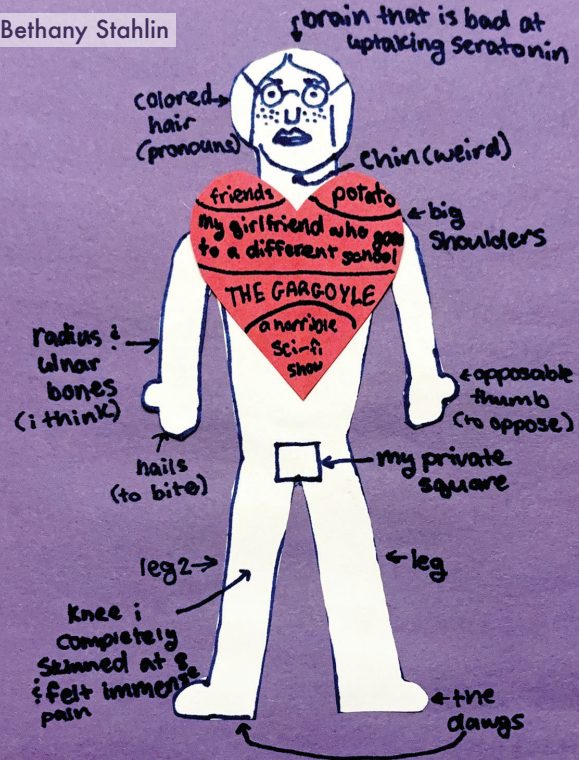 Bethany Stahlin
brain that is bad at
uptaking seratonin
colored
hair
(pronouns)
chin (weird)
friends
potato
my girlfriend who goes
to a different school
big
shoulders
THE GARGOYLE
a horrible
sci-fi
show
radius &
ulnar
bones
(i think)
opposable
thumb
(to oppose)
nails
(to bite)
my private
square
leg 2
leg
knee i
completely
skinned at 8
& felt immense
pain
the
dawgs